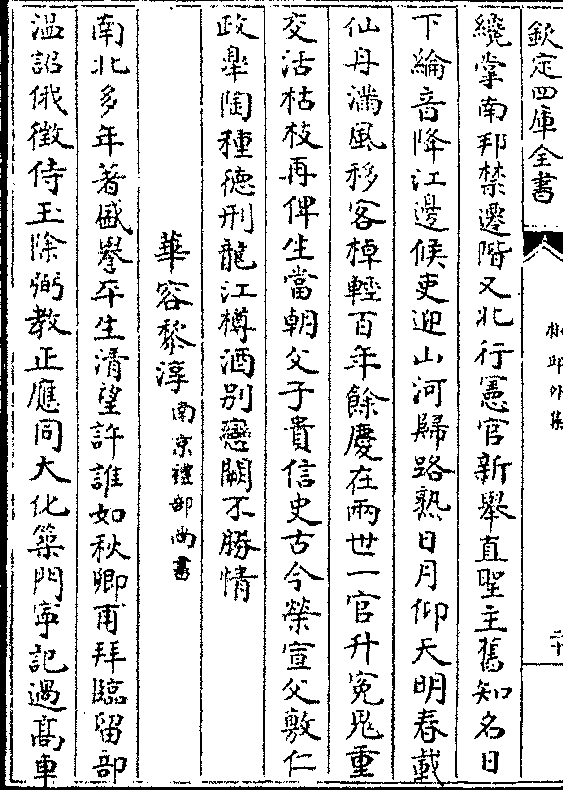 欽定四庫全書
椒邱外集
二十
纔掌南邦禁遷階又北行憲官新舉直聖主舊知名日
下綸音降江邊候吏迎山河歸路熟日月仰天明春載
仙舟滿風移客棹輕百年餘慶在兩世一官升冤鬼重
交沾枯枝再俾生當朝父子貴信史古今榮宣父敷仁
政臯陶種德刑龍江樽酒別戀闕不勝情
華容黎淳南京禮部尚書
南北多年著盛譽平生清望許誰如秋卿甫拜臨留部
溫詔俄徵侍玉除弼教正應同大化築門寧記過高車